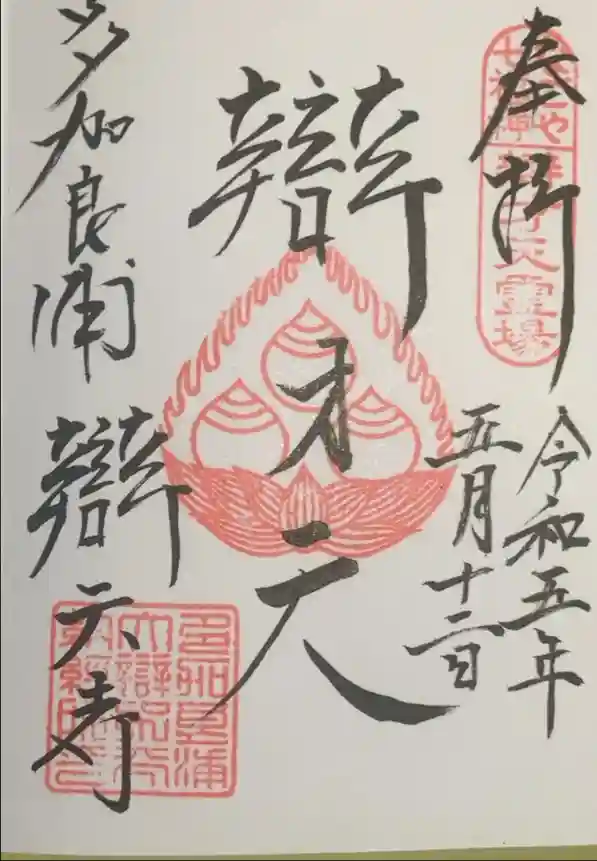 奉拝
なごや
七福神
辯才天霊場
令和五年
五月十三日
辯才天
多加良浦
辯天寺
多加良浦